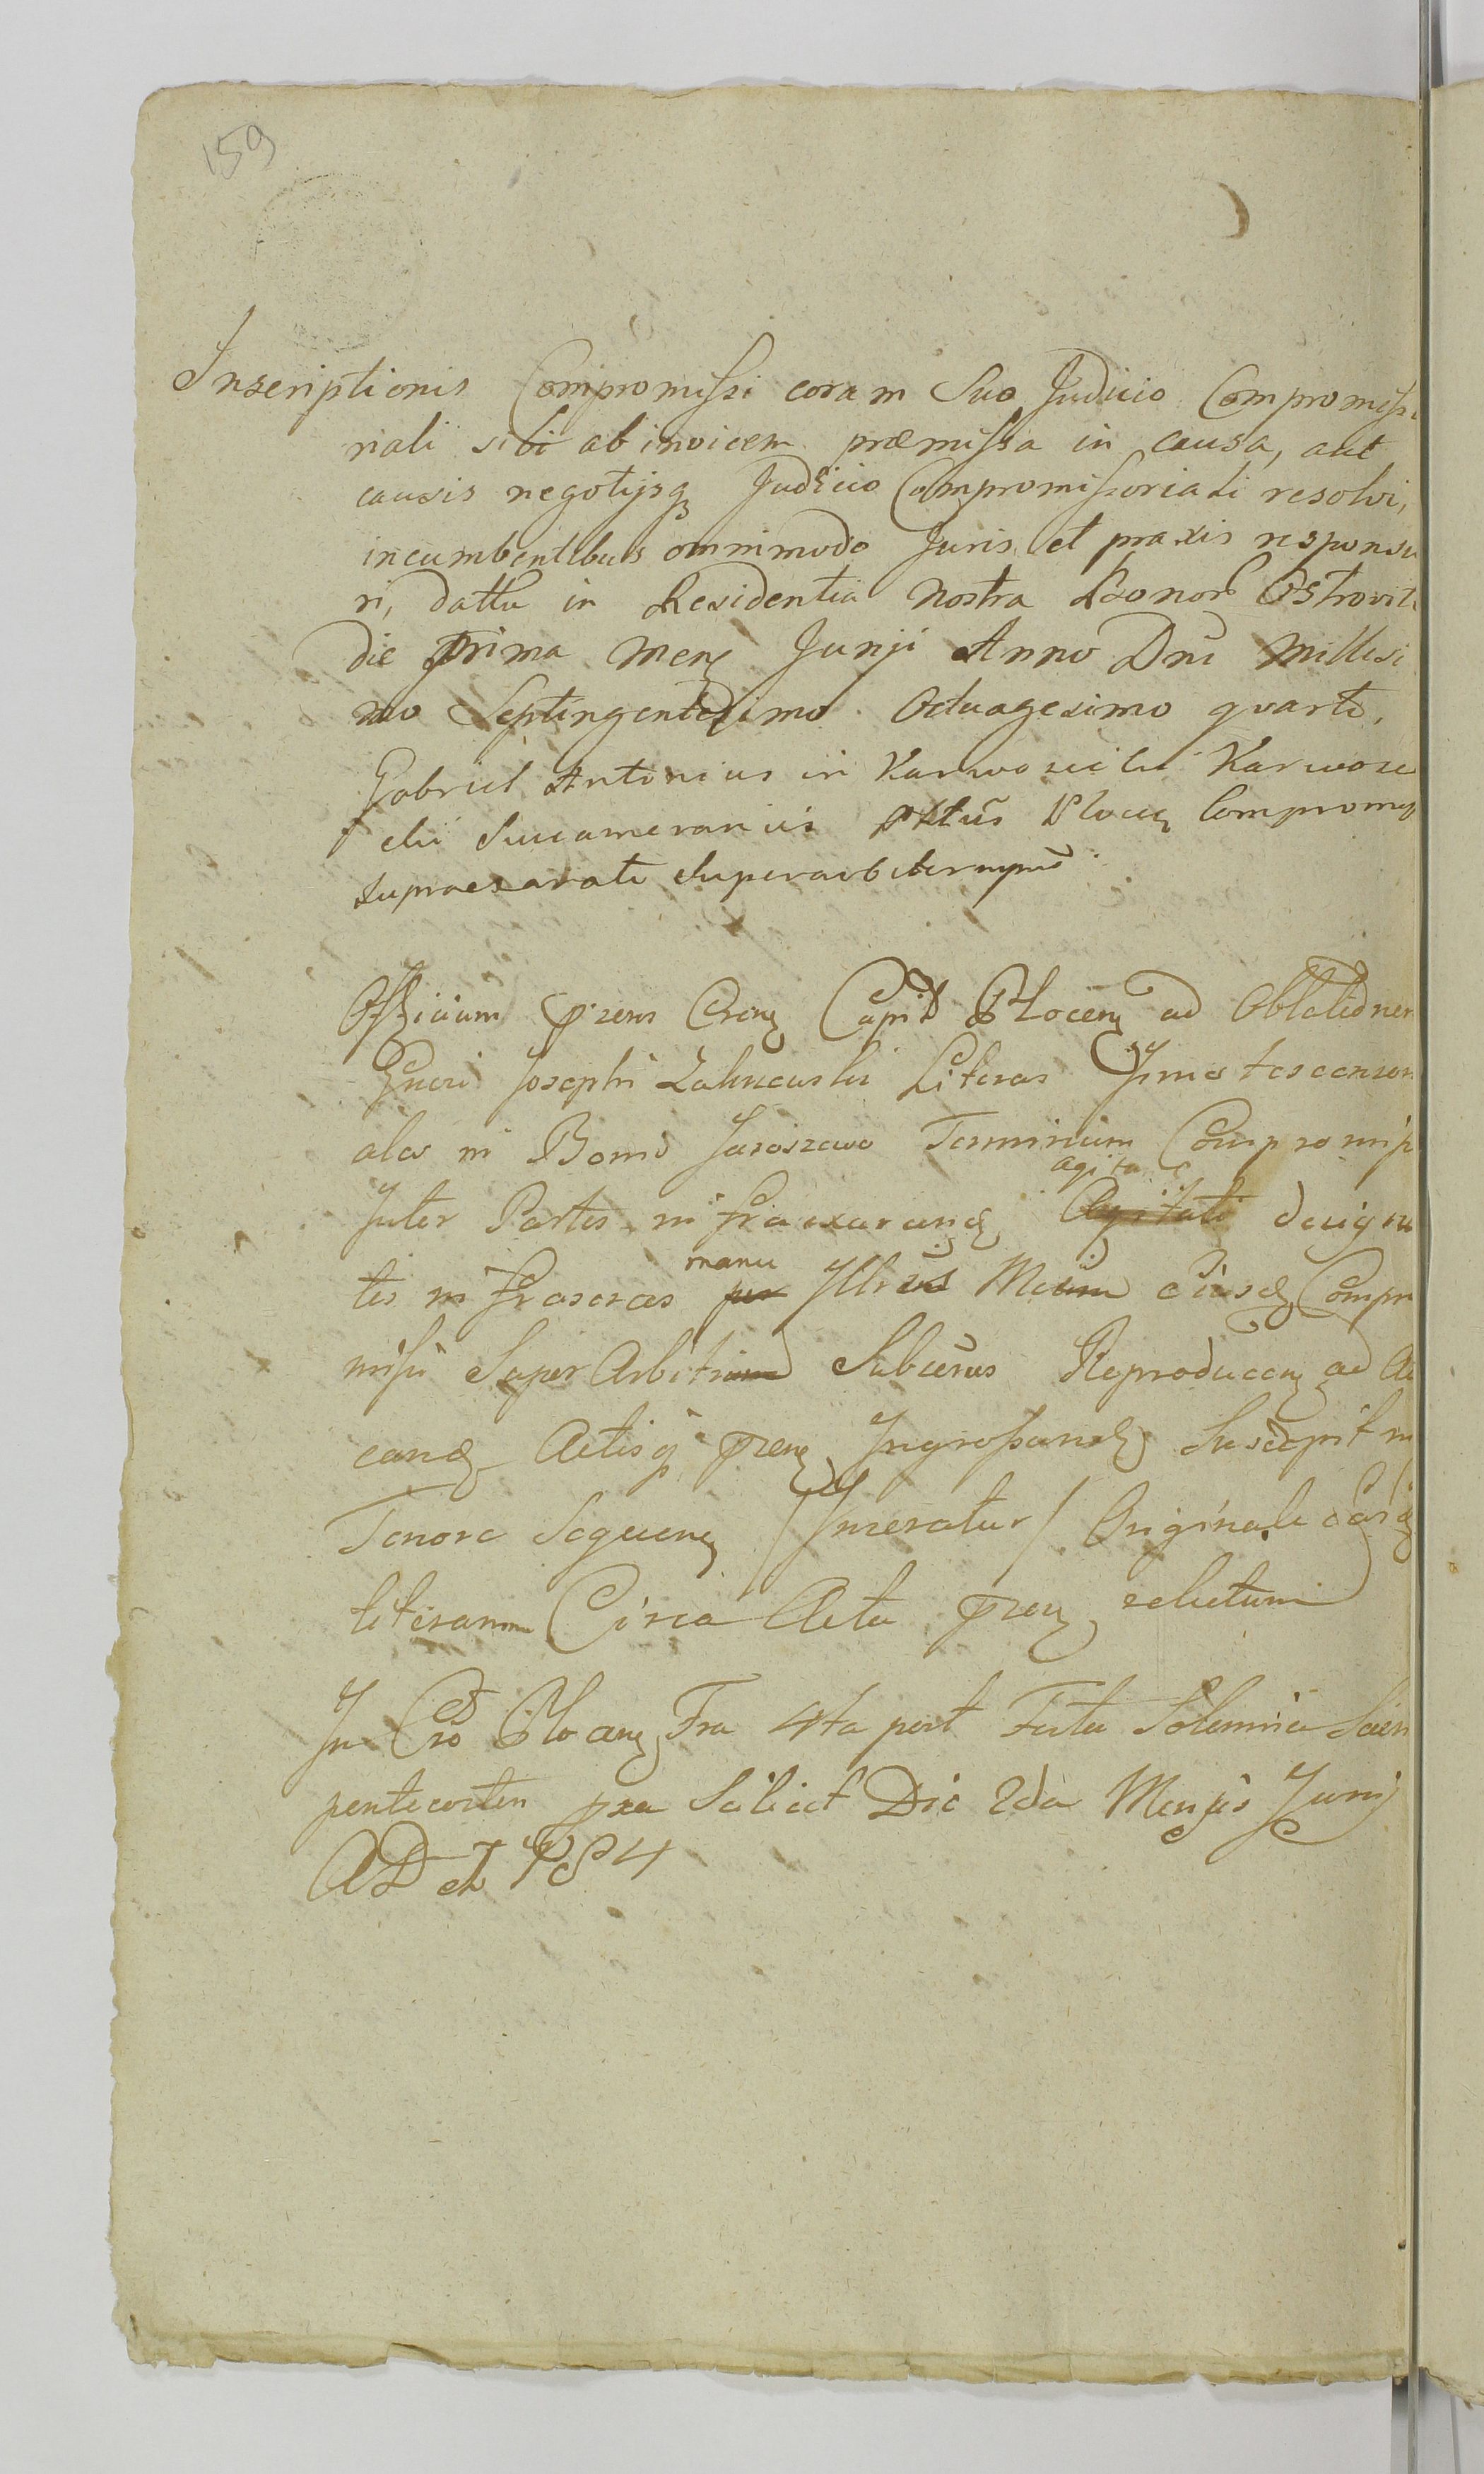 159
Inscriptionis Compromissi coram Suo Judicio Compromisso
riali sibi ab invicem præmissa in causa, aut
causis negotijsq Judicio Compromissoriali resolvi,
incumbentibus omnimodo Juris et praxis responsu
ri, datta in Residentia Nostra Bonor Ostrovit
die prima Mens Junji Anno Dni Millesi
mo Septingentesimo Octuagesimo quarto,
Gabriel Antonius in Karwosieki Karwosie
cki Succamerarius Pltus Plocen Compromis
supraexarati Superarbiter mpr
Officium prens Crens Capit Plocen ad Oblationem
Gnosi Josephi Literas Innotescension
ales in Bonis Jaroszewo Terminum Compromiss
Inter Partes infraexarand agitati design
tis infrascras manu Illris Mci eiusd Compro
missi Super Arbitri Subscras Reproducen ad
cand Actisq prens Ingrossand Suscepit
Tenore Sequen /Inseratur/ Originale
literarum Circa Acta pren relictum
In Cro Plocen Fra 4ta post Festa Solennia Sacr
pentecosten pxa Scilicet Die 2da Mensis Junij
AD 1784